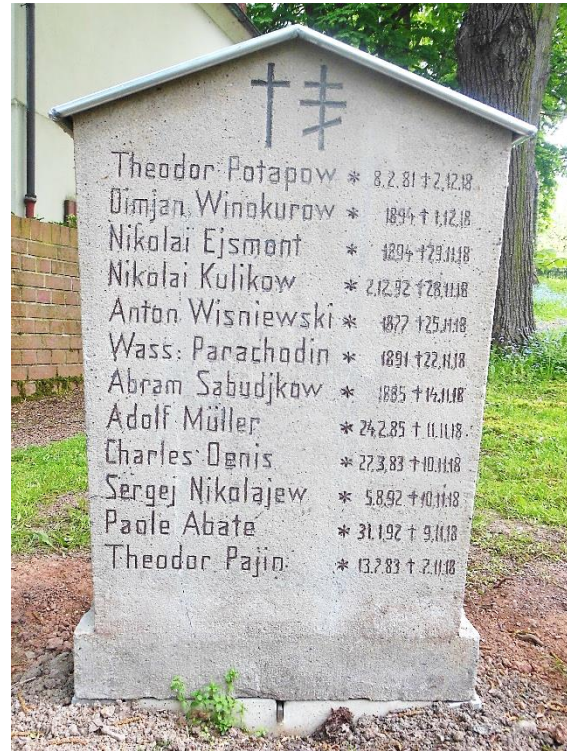 Theodor Potapow * 8.2.81 † 2.12.18
Dimjan Winokurow * 1894 † 1.12.18
Nikolai Ejsmont * 1894 † 29.11.18
Nikolai Kulikow * 2.12.92 † 28.11.18
Anton Wisniewski * 1877 † 25.11.18
Wass: Parachodin * 1891 † 22.11.18
Abram Sabudjkow * 1885 † 14.11.18
Adolf Müller * 24.2.85 † 11.11.18
Charles Denis * 27.3.83 † 10.11.18
Sergej Nikolajew * 5.8.92 † 10.11.18
Paole Abate * 31.1.92 † 9.11.18
Theodor Pajin * 13.2.83 † 2.11.18